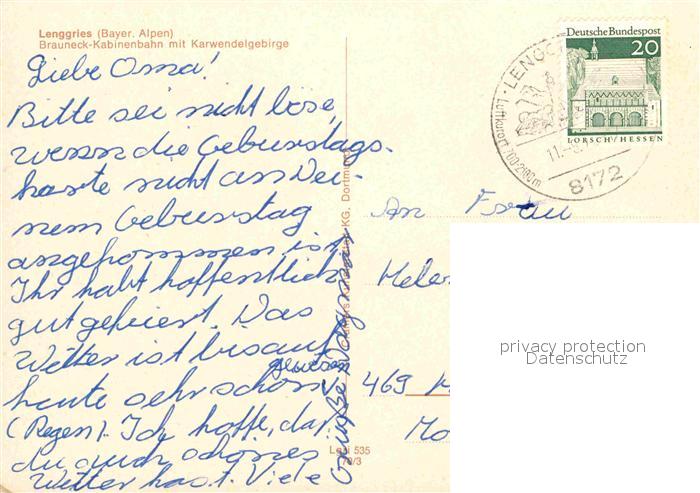 Lenggries (Bayer. Alpen)
Brauneck-Kabinenbahn mit Karwendelgebirge
Liebe Oma!
Bitte sei nicht böse,
wenn die Geburtstags-
karte nicht an Dei-
nem Geburtstag
angekommen ist.
Ihr habt hoffentlich
gut gefeiert. Das
Wetter ist bis auf
heute sehr schön gewesen
(Regen). Ich hoffe, daß
du auch schönes
Wetter hast. Viele
Grüße
KG, Dortmund
Lggi 535
70/3
Deutsche Bundespost
20
LORSCH/HESSEN
LENGG
Luftkurort 700-2100m
11.
8172
An Frau
Helen
469 H
Mo
privacy protection
Datenschutz